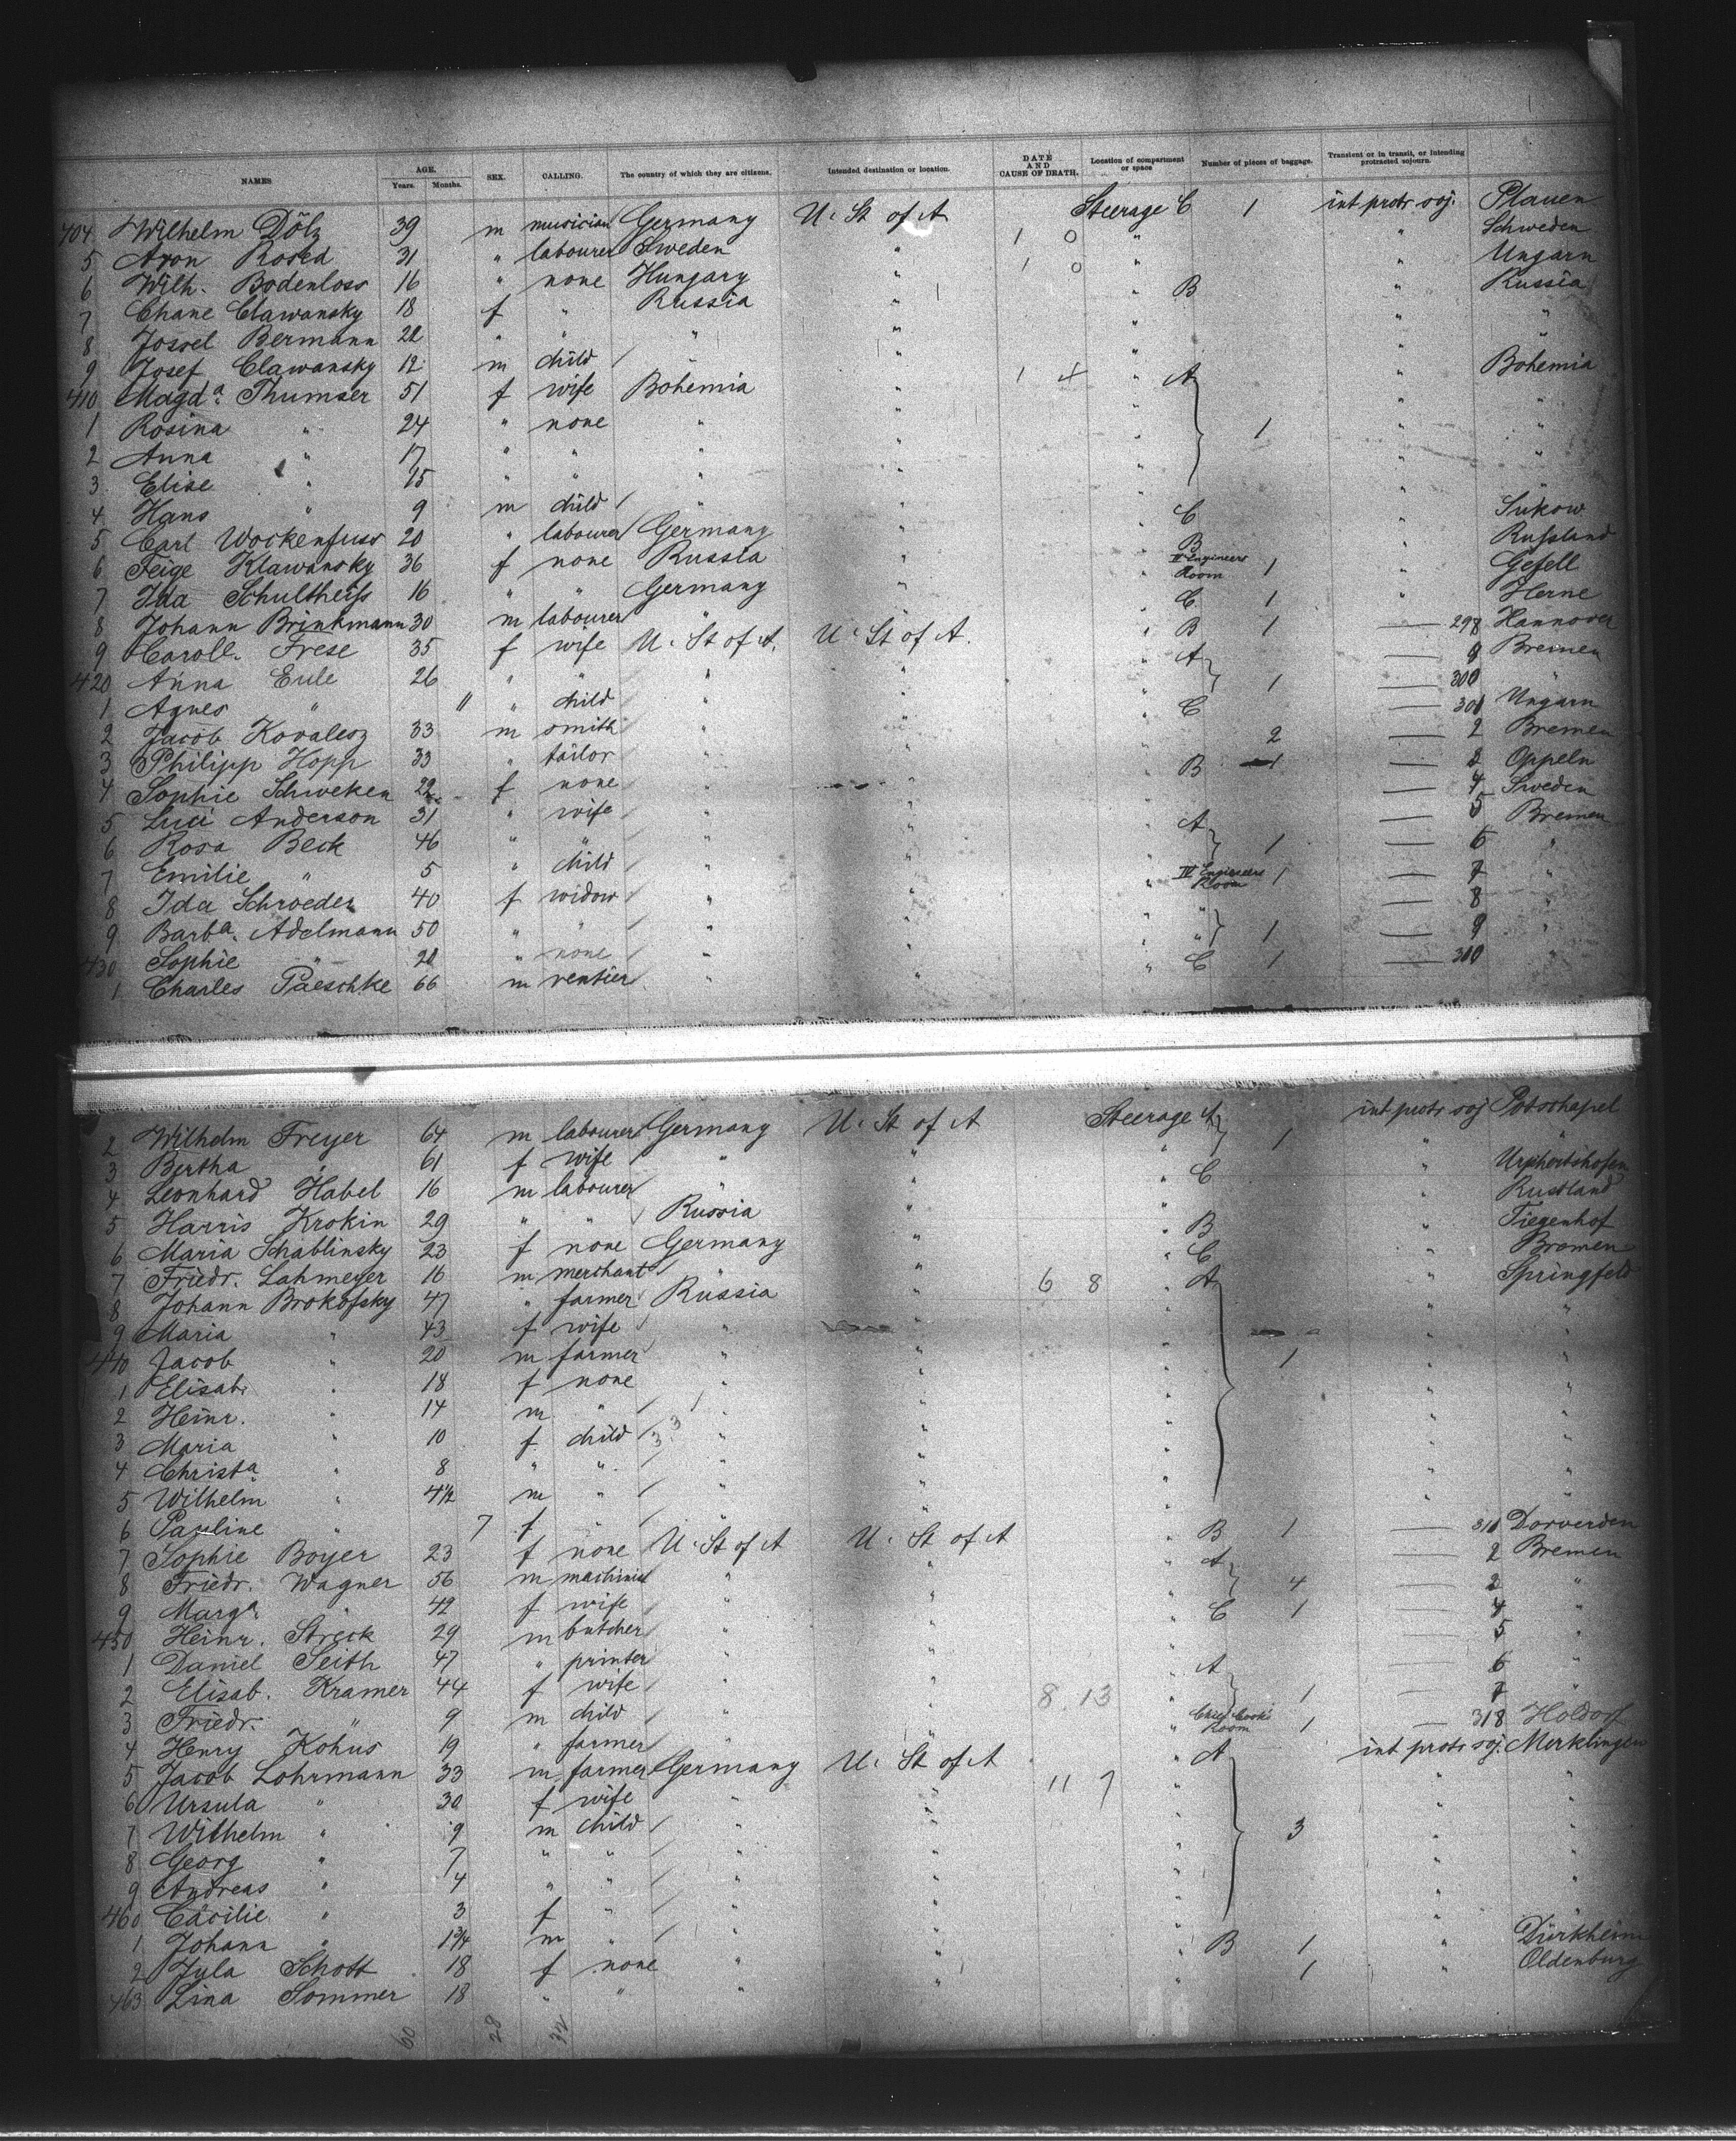 NAMES AGE. Years. Months. SEX. CALLING. The country of which they are citizens. Intended destination or location. DATE AND CAUSE OF DEATH. Location of compartment or space Number of pieces of baggage. Transient or in transit, or intending protracted sojourn.
404 Wilhelm Dölz 39 m musician Germany U. St of A Steerage C 1 int protr soj. Plauen
5 Aron Rosed 31 " labourer Sweden " 1 0 " " Schweden
6 Wilh. Bodenloss 16 " none Hungary " 1 0 " " Ungarn
7 Chane Clawansky 18 f " Russia " " B " Russia
8 Jossel Bermann 22 " " " " " " "
9 Josef Clawansky 12 m child " " " " "
410 Magda. Thumser 51 f wife Bohemia " 1 4 " A " Bohemia
1 Rosina " 24 " none " " " 1 " "
2 Anna " 17 " " " " " " "
3 Elise " 15 " " " " " " "
4 Hans " 9 m child " " " " "
5 Carl Wockenfuss 20 " labourer Germany " " C " Sukow
6 Feige Klawansky 36 f none Russia " " B " Russland
7 Ida Schultheiss 16 " " Germany " " II Engineers Room 1 " Gefell
8 Johann Brinkmann 30 m labourer " " " C 1 " Herne
9 Caroll. Frese 35 f wife U. St of A. U. St of A. " B 1 — 298 Hannover
420 Anna Eule 26 " " " " " A 1 — 9 Bremen
1 Agnes " 11 " child " " " — 300
2 Jacob Kovalesz 33 m smith " " " C — 301 Ungarn
3 Philipp Hopp 33 " tailor " " " 2 — 2 Bremen
4 Sophie Schweken 22 f none " " " B 1 — 3 Oppeln
5 Luci Anderson 31 " wife " " " — 4 Sweden
6 Rosa Beck 46 " " " " " A 1 — 5 Bremen
7 Emilie " 5 " child " " " — 6 "
8 Ida Schroeder 40 f widow " " " IV Engineers Room 1 — 7 "
9 Barba. Adelmann 50 " " " " " " 1 — 8 "
430 Sophie " 20 " none " " " " — 9 "
1 Charles Paeschke 66 m rentier " " " C 1 — 310 "
2 Wilhelm Freyer 64 m labourer Germany U. St of A Steerage A 1 int protr soj Potschapel
3 Bertha " 61 f wife " " " " "
4 Leonhard Habel 16 m labourer " " " C "
5 Harris Krokin 29 " " Russia " " " Russland
6 Maria Schablinsky 23 f none Germany " " B " Tiegenhof
7 Friedr. Lahmeyer 16 m merchant " " " C " Bremen
8 Johann Brokofsky 47 " farmer Russia " 6 8 " A " Springfeld
9 Maria " 43 f wife " " " " "
440 Jacob " 20 m farmer " " " 1 " "
1 Elisab. " 18 f none " " " " "
2 Heinr. " 14 m " " " " " "
3 Maria " 10 f child " " " " "
4 Christa " 8 " " " " " " "
5 Wilhelm " 4½ m " " " " " "
6 Pauline " 7 f " " " " " "
7 Sophie Boyer 23 f none U. St of A U. St of A " B 1 — 311 Dorverden
8 Friedr. Wagner 56 m machinist " " " A 4 — 2 Bremen
9 Marga. " 42 f wife " " " — 3 "
450 Heinr. Streck 29 m butcher " " " C 1 — 4 "
1 Daniel Seith 47 " printer " " " — 5 "
2 Elisab. Kramer 44 f wife " " " A 1 — 6 "
3 Friedr. " 9 m child " " 8 13 " — 7 "
4 Henry Kohus 19 " farmer " " " Chief Cooks Room 1 — 318 Holdorf
5 Jacob Lohrmann 33 m farmer Germany U. St of A " A int protr soj. Merklingen
6 Ursula " 30 f wife " " 11 7 " " "
7 Wilhelm " 9 m child " " " 3 " "
8 Georg " 7 " " " " " " "
9 Andreas " 4 " " " " " " "
460 Cäcilie " 3 f " " " " " "
1 Johann " 1¾ m " " " " " "
2 Jula Schott 18 f none " " " B 1 " Dürkheim
463 Lina Sommer 18 " " " " " 1 " Oldenburg
60 28 32